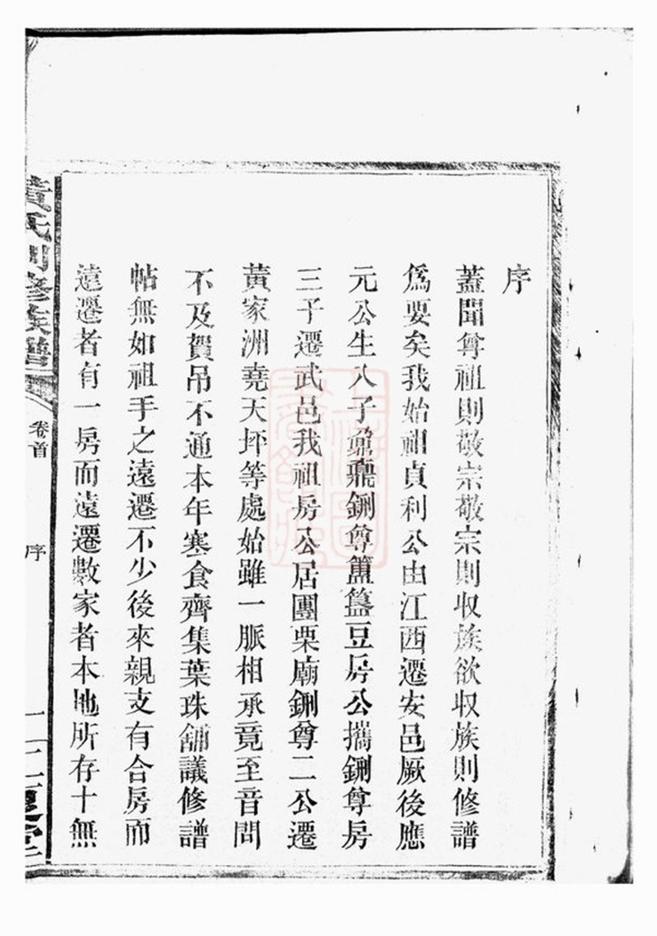 序
蓋聞尊祖則敬宗敬宗則収族欲収族則修譜
爲要矣我始祖貞利公由江西遷安邑厥後應
元公生八子鼐鼒鉶尊簠簋豆房公攜鉶尊房
三子遷武邑我祖房公居團栗廟鉶尊二公遷
黃家洲堯天坪等處始雖一脈相承竟至音問
不及賀吊不通本年寒食齊集葉珠舖議修譜
帖無如祖手之遠遷不少後來親支有合房而
遠遷者有一房而遠遷數家者本地所存十無
黃氏 修族譜
卷首
序
一